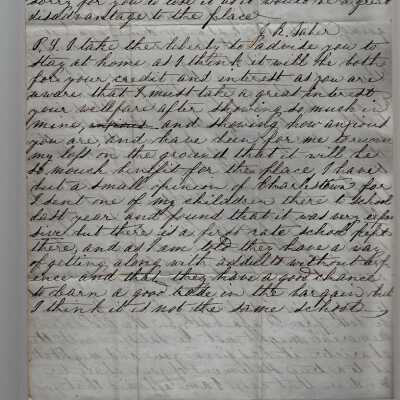 sorry for you to use it as it would be a great
disadvantage to the place
R. Saber
P.S. I take the liberty to advise you to
stay at home as I think it will be both
for your credit and interest as you are
aware that I must take a great interest
your wellfare after showing so much in
mine, and showing how anxious
you are, and have been for me to
my left on the ground that it will be
so mouch benefit for the place I have
but a small opinion of Charlstown for
I sent one of my children there to school
last year and found that it was very expen
sive but there is a first rate school kept
there, and as I am told they have a way
of getting along with addults without
ence and that they have a good chance
to learn a good trade in the bargain but
I think it is not the same school